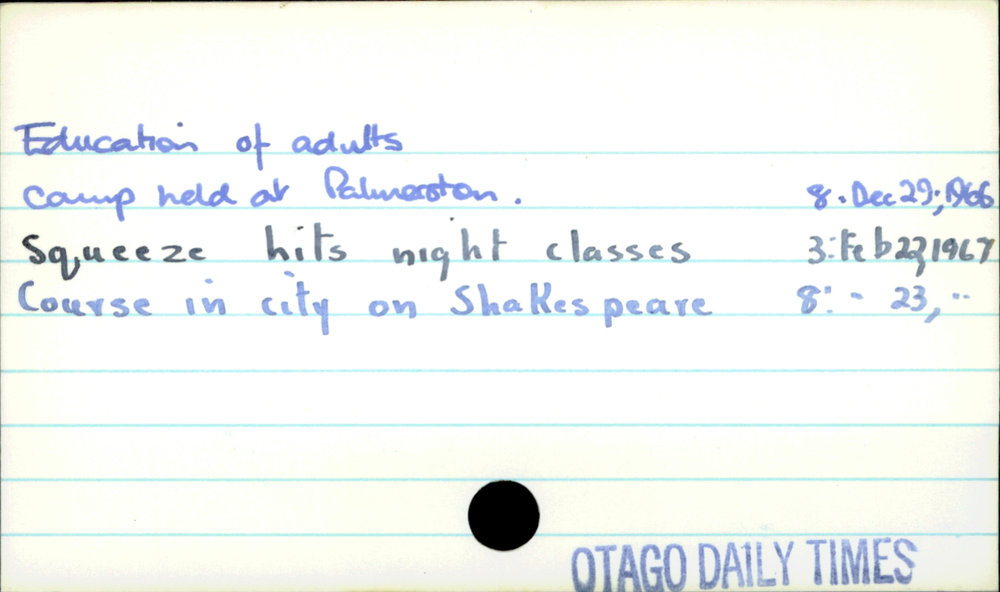 Education of adults
Camp held at Palmerston. 8. Dec 29, 1966
Squeeze hits night classes 3: Feb 22, 1967
Course in city on Shakespeare 8: " 23, "
OTAGO DAILY TIMES